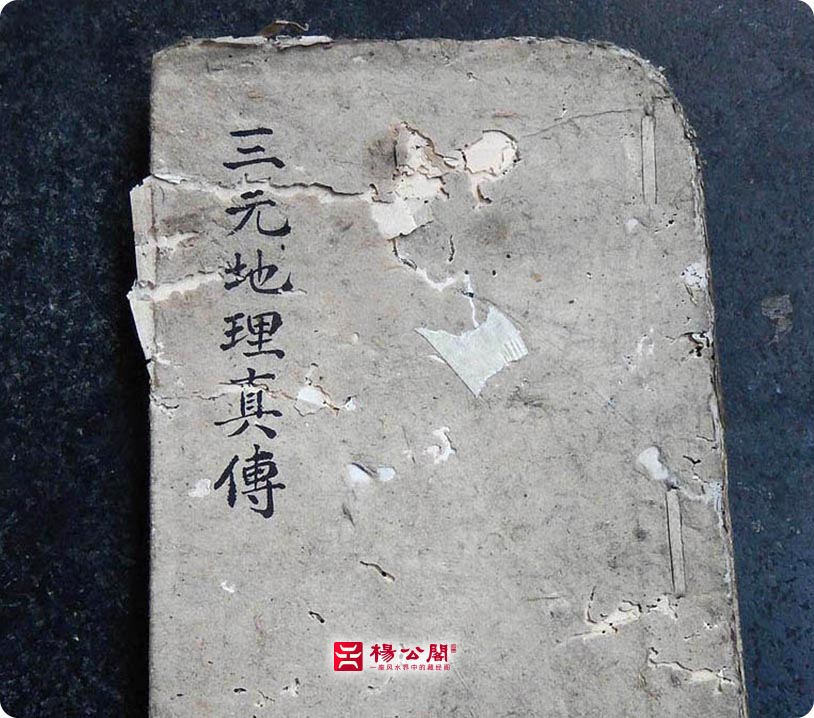 三元地理真傳
楊公閣
一座风水界中的藏经阁